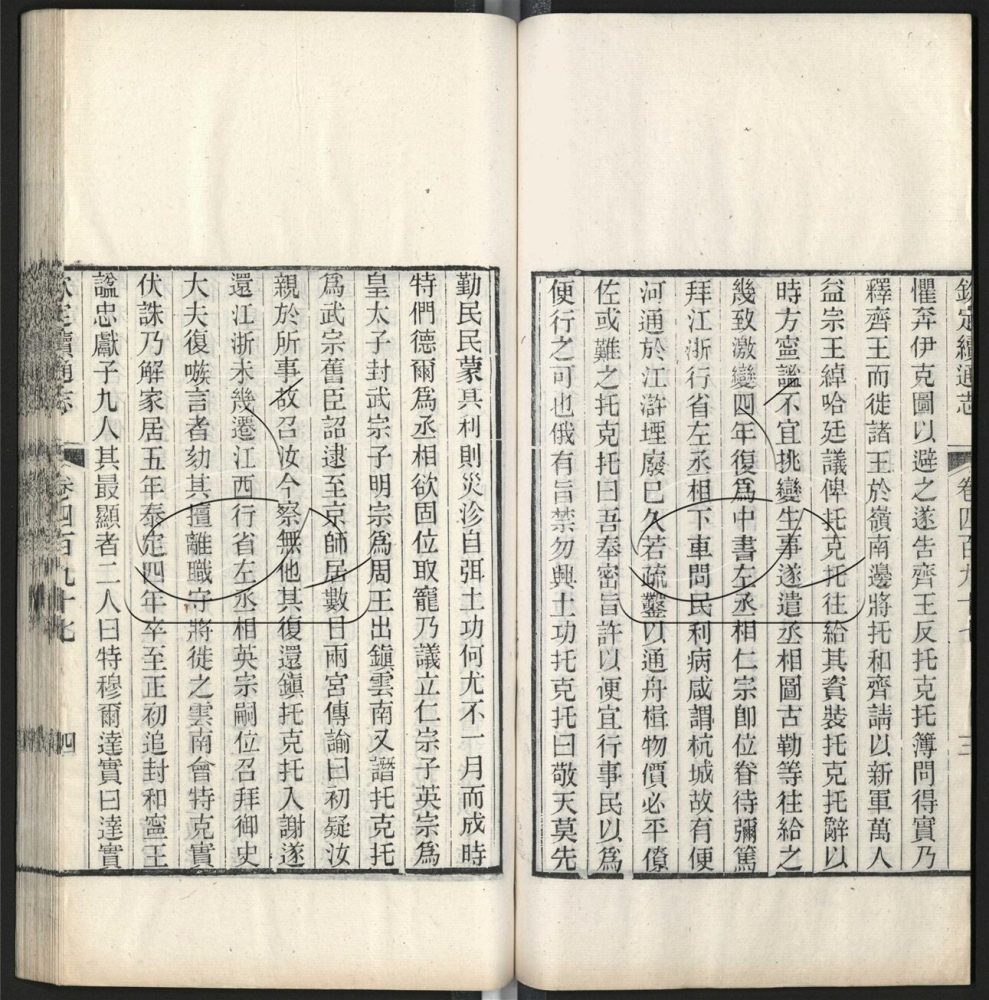 欽定續通志 卷四百九十七 三
懼奔伊克圖以避之遂告齊王反托克托簿問得實乃
釋齊王而徙諸王於嶺南邊將托和齊請以新軍萬人
益宗王綽哈廷議俾托克托往給其資裝托克托辭以
時方寧謐不宜挑變生事遂遣丞相圖古勒等往給之
幾致激變四年復爲中書左丞相仁宗卽位眷待彌篤
拜江浙行省左丞相下車問民利病咸謂杭城故有便
河通於江滸堙廢巳久若疏鑿以通舟楫物價必平僚
佐或難之托克托曰吾奉密旨許以便宜行事民以爲
便行之可也俄有旨禁勿興土功托克托曰敬天莫先
勤民民蒙其利則災沴自弭土功何尤不一月而成時
特們德爾爲丞相欲固位取寵乃議立仁宗子英宗爲
皇太子封武宗子明宗爲周王出鎭雲南又譖托克托
爲武宗舊臣詔逮至京師居數日兩宮傳諭曰初疑汝
親於所事故召汝今察無他其復還鎭托克托入謝遂
還江浙未幾遷江西行省左丞相英宗嗣位召拜御史
大夫復嗾言者劾其擅離職守將徙之雲南會特克實
伏誅乃解家居五年泰定四年卒至正初追封和寧王
諡忠獻子九人其最顯者二人曰特穆爾達實曰達實
欽定續通志 卷四百九十七 四